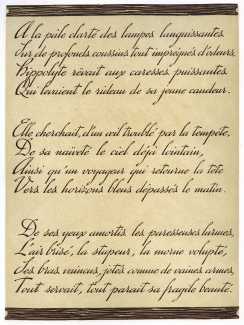 A la pâle clarté des lampes languissantes,
Sur de profonds coussins tout imprégnés d'odeurs,
Hippolyte rêvait aux caresses puissantes
Qui levaient le rideau de sa jeune candeur.
Elle cherchait, d'un œil troublé par la tempête,
De sa naïveté le ciel déjà lointain,
Ainsi qu'un voyageur qui retourne la tête
Vers les horizons bleus dépassés le matin.
De ses yeux amortis les paresseuses larmes,
L'air brisé, la stupeur, la morne volupté,
Ses bras vaincus, jetés comme de vaines armes,
Tout servait, tout parait sa fragile beauté.